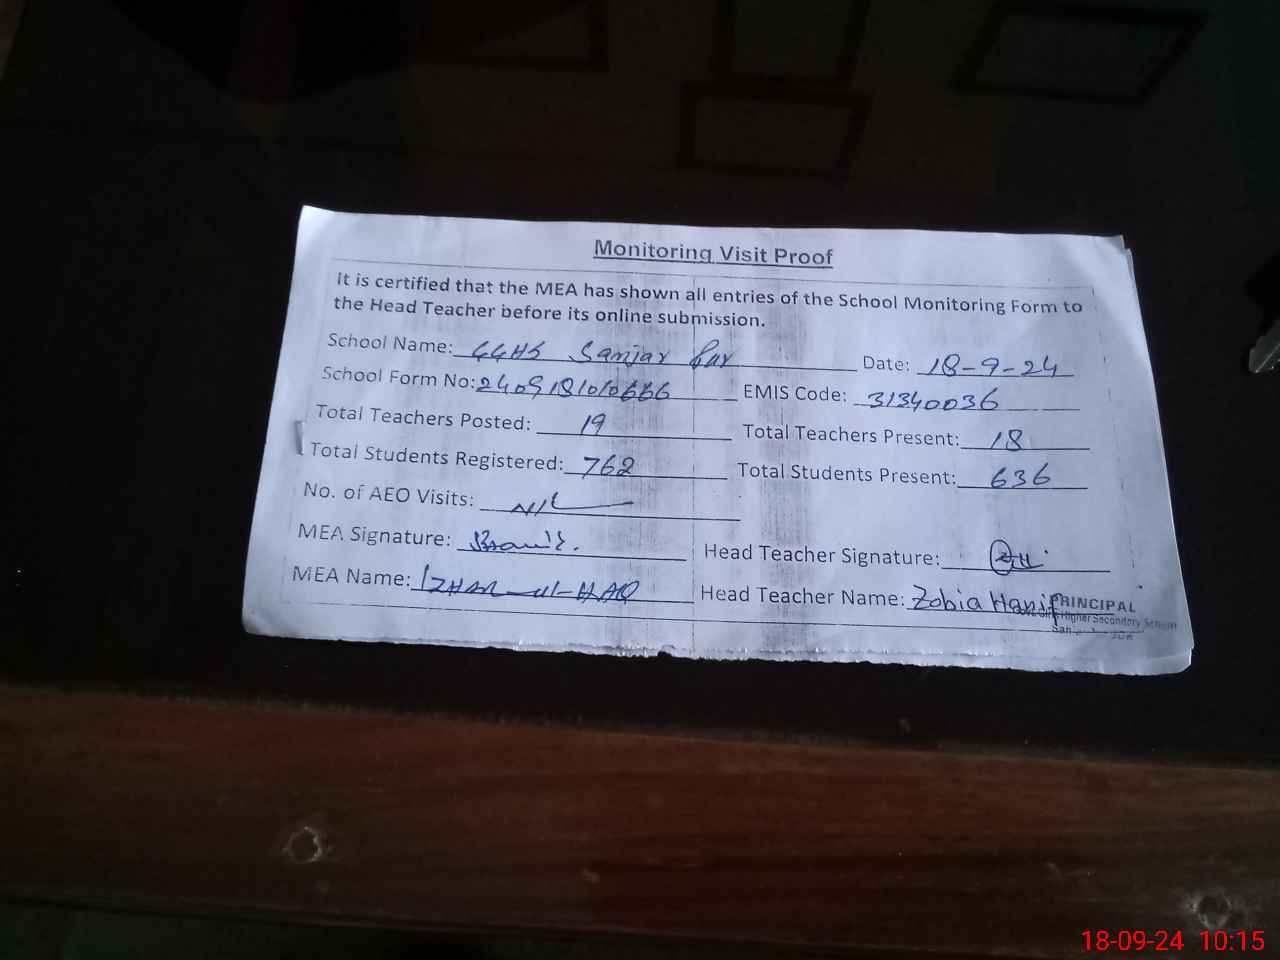 Monitoring Visit Proof
It is certified that the MEA has shown all entries of the School Monitoring Form to
the Head Teacher before its online submission.
School Name: GGHS Sanjar Pur Date: 18-9-24
School Form No: 2409181010666 EMIS Code: 31340036
Total Teachers Posted: 19 Total Teachers Present: 18
Total Students Registered: 762 Total Students Present: 636
No. of AEO Visits: NIL
MEA Signature:
Head Teacher Signature:
MEA Name: IZHAR-ul-HAQ Head Teacher Name: Zobia Hanif
PRINCIPAL
Higher Secondary School
18-09-24 10:15